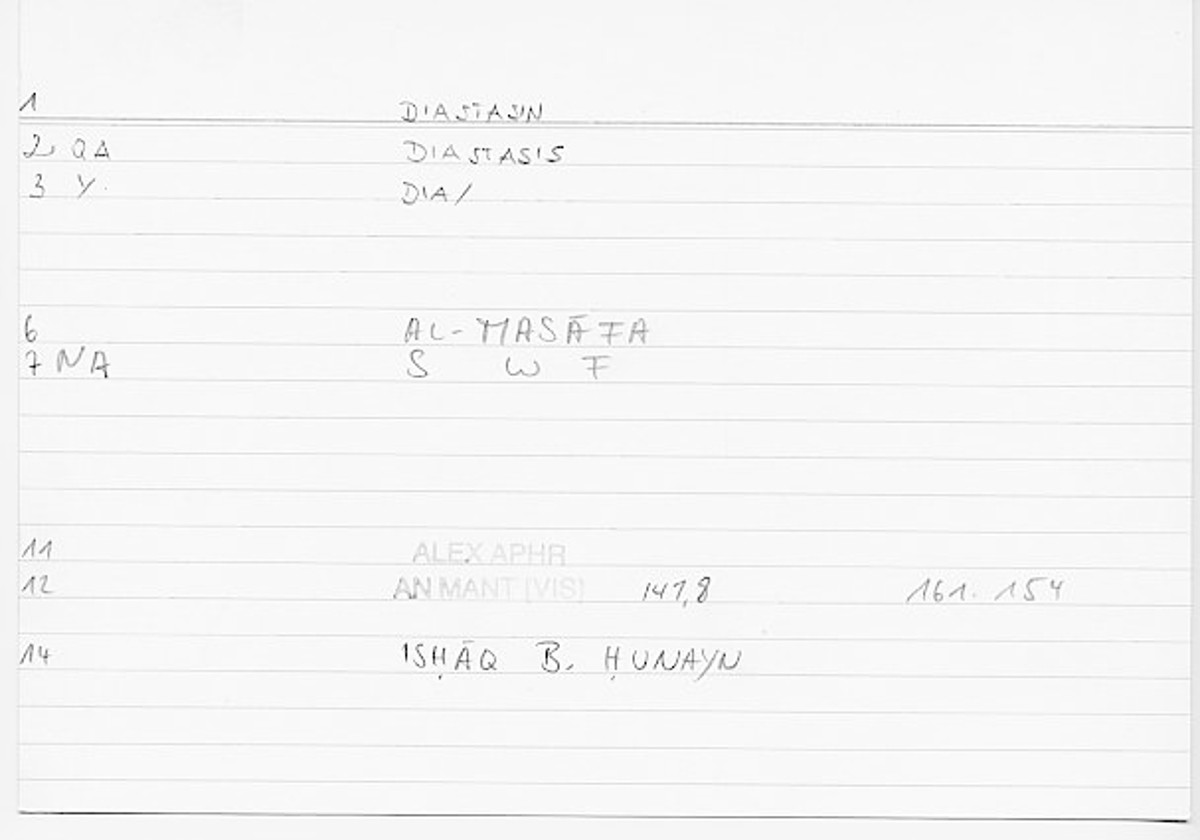 1 DIASTASIN
2 QA DIASTASIS
3 Y. DIA/
6 AL-MASĀFA
7 NA S W F
11 ALEX APHR
12 AN MANT [VIS] 147,8 161. 154
14 ISḤĀQ B. ḤUNAYN